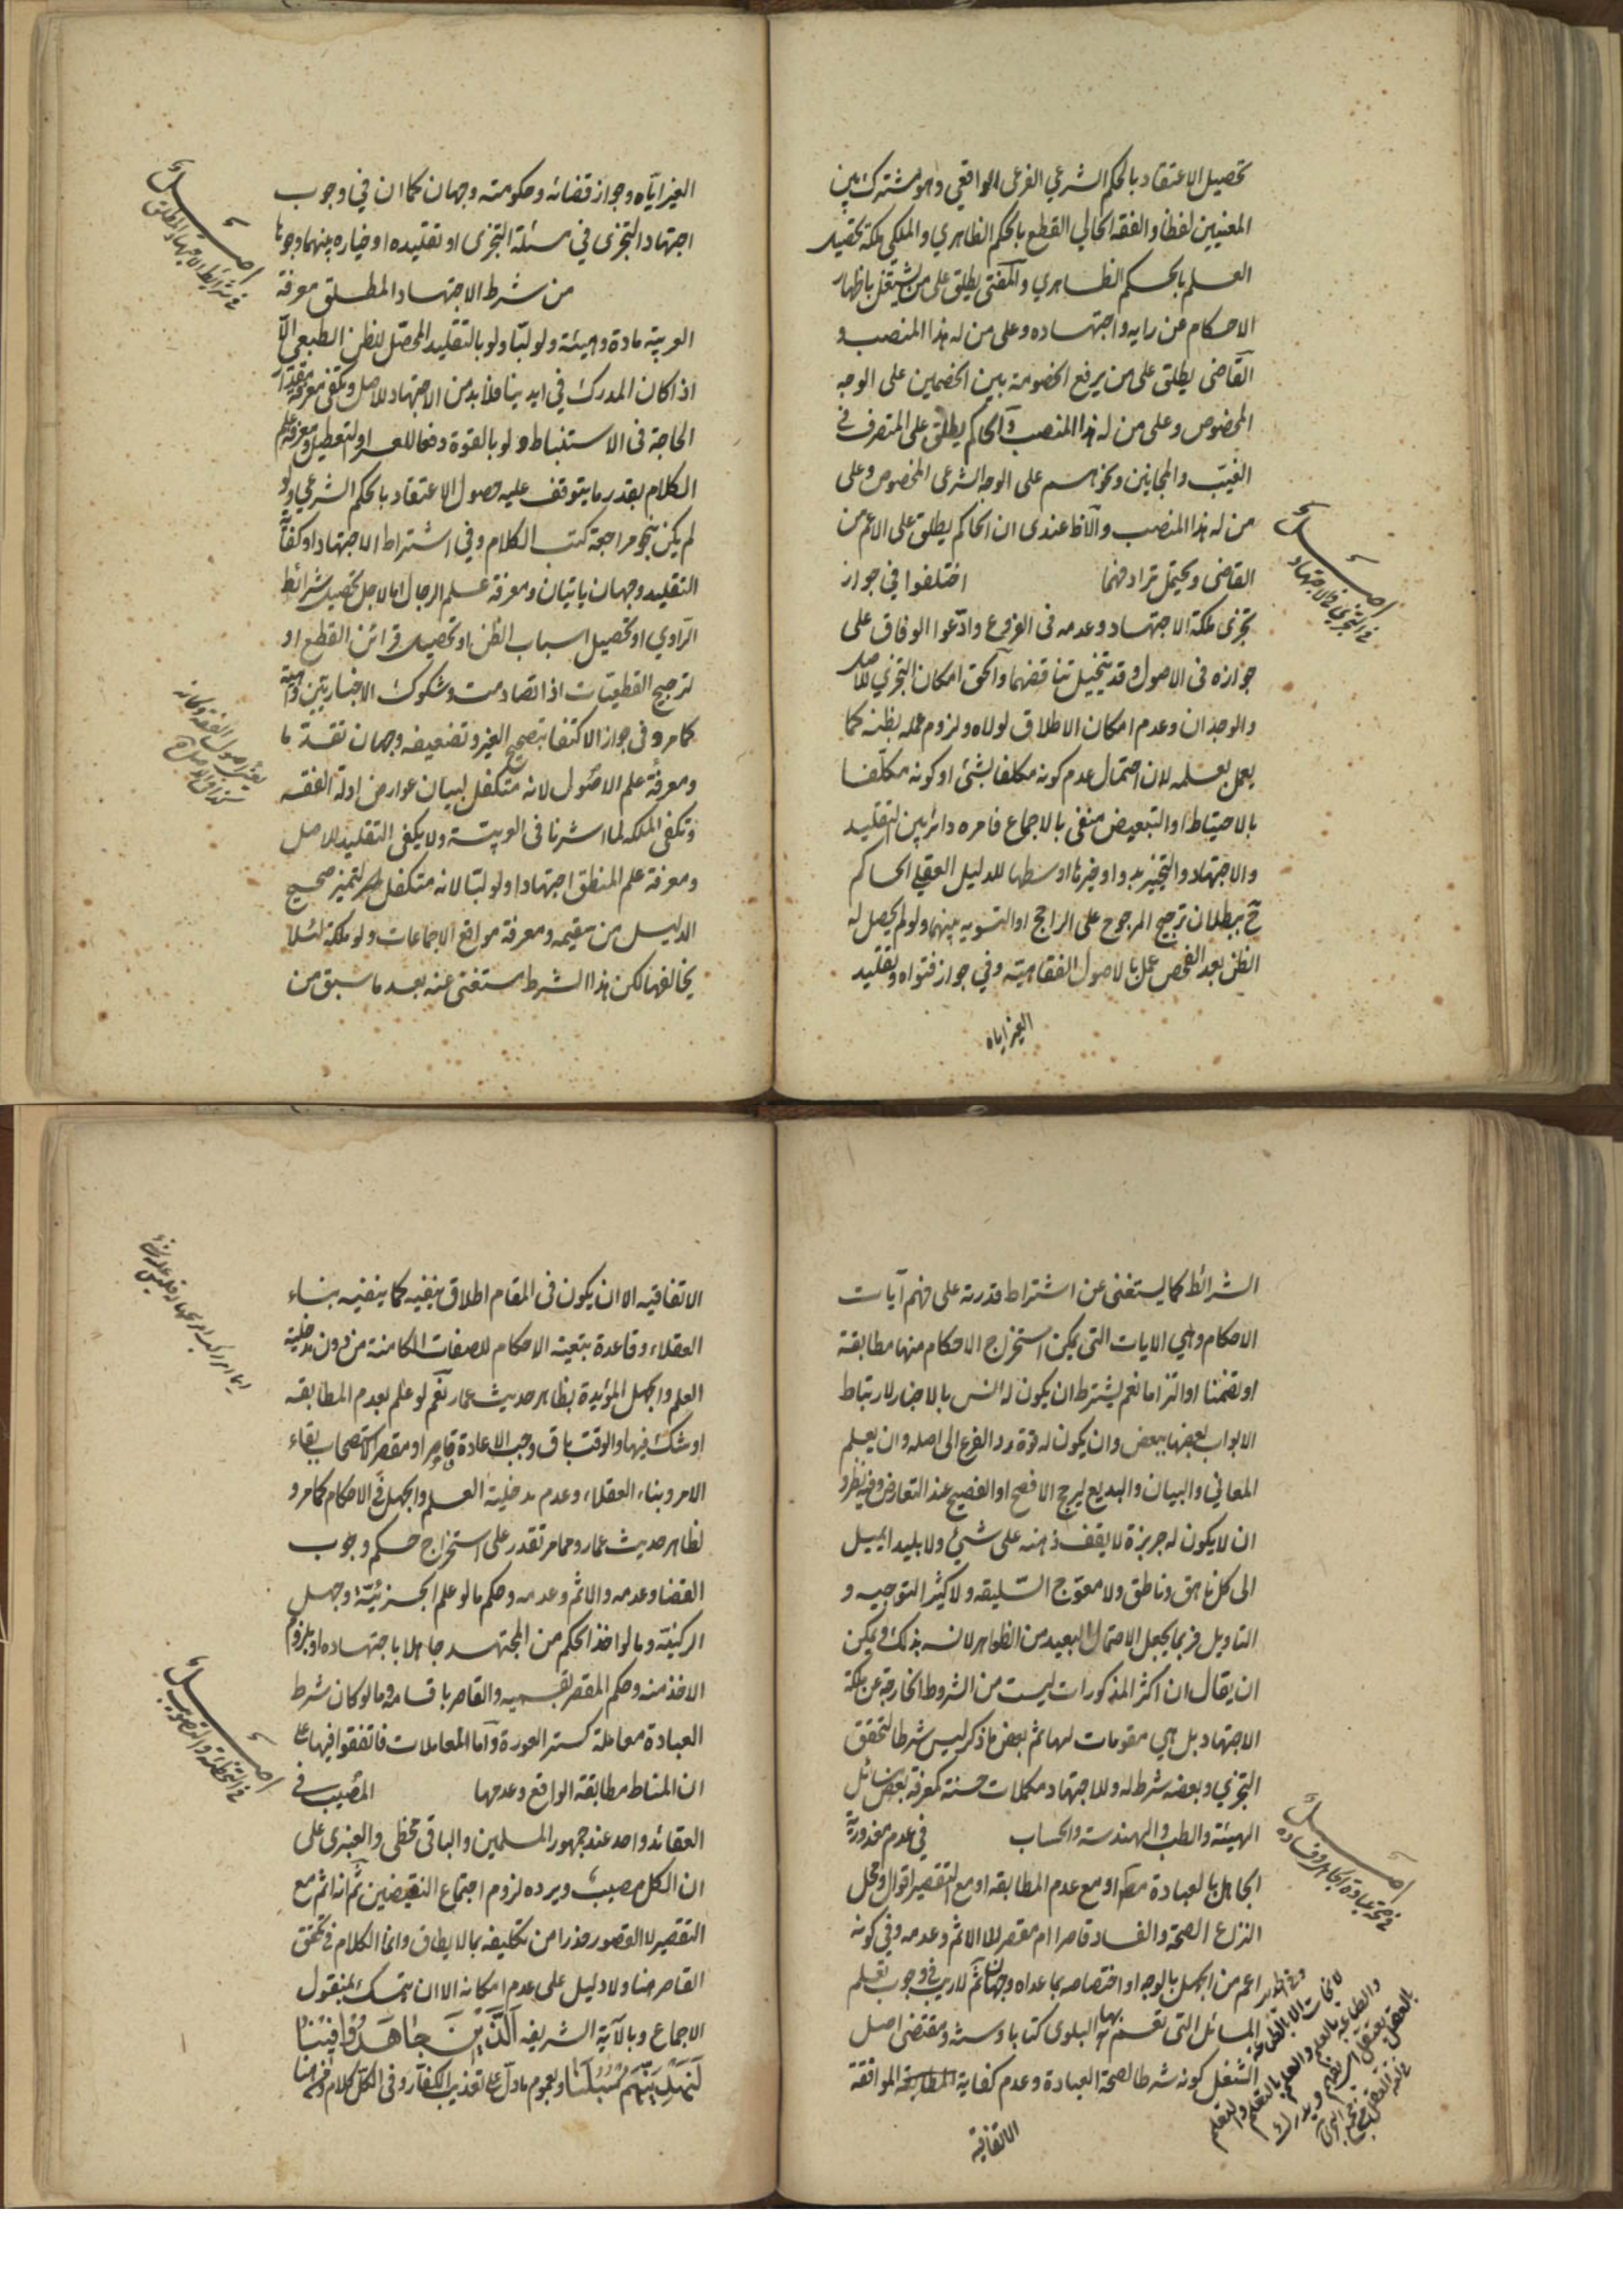 تحصيل الاعتقاد بالحكم الشرعي الفرعى الواقعي وهو مشترك بين
المعنيين لفظا والفقه الحالي القطع بالحكم الظاهري والملكي ملكة تحصيل
العلم بالحكم الظاهري والمفتى يطلق على من يشتغل باظهار
الاحكام عن رايه واجتهاده وعلى من له هذا المنصب و
القاضى يطلق على من يرفع الخصومة بين الخصمين على الوجه
المخصوص وعلى من له هذا المنصب والحاكم يطلق على المتصرف في
الغيب والمجانين ونحوهم على الوجه الشرعى المخصوص وعلى
من له هذا المنصب والاظ عندى ان الحاكم يطلق على الاعم من
القاضى ويحتمل ترادفهما اختلفوا في جواز
تجزى ملكة الاجتهاد وعدمه فى الفروع وادّعوا الوفاق على
جوازه فى الاصول وقد يتخيل تناقضهما والحق امكان التجزي للاصل
والوجدان وعدم امكان الاطلاق لولاه ولزوم عمله بظنه كما
يعمل بعلمه لان احتمال عدم كونه مكلفا بشئ او كونه مكلفا
بالاحتياط او التبعيض منفى بالاجماع فامره دائر بين التقليد
والاجتهاد والتخيير بدوا وخيرها اوسطها للدليل العقلي الحاكم
ح ببطلان ترجيح المرجوح على الراجح او التسويه بينهما ولو لم يحصل له
الظن بعد الفحص عمل بالاصول الفقاهيته وفي جواز فتواه وتقليد
الغير اياه
اصل
في التجزي في الاجتهاد
الغير اياه وجواز قضائه وحكومته وجهان كما ان في وجوب
اجتهاد التجزى في مسئلة التجزى او تقليده او خياره بينهما وجوها
من شرط الاجتهاد المطلق معرفة
العربية مادة وهيئة ولو لبّا ولو بالتقليد المحصّل للظن الطبعي الّا
اذا كان المدرك في ايدينا فلا بد من الاجتهاد للاصل ويكفى معرفة مقدار
الحاجة فى الاستنباط ولو بالقوة دفعا للعسر او لتعطيل ومعرفة علم
الكلام بقدر ما يتوقف عليه حصول الاعتقاد بالحكم الشرعي ولو
لم يكن بنحو مراجعة كتب الكلام وفي اشتراط الاجتهاد او كفاية
التقليد وجهان ياتيان ومعرفة علم الرجال اما لاجل تحصيل شرائط
الراوي او تحصيل اسباب الظن او تحصيل قرائن القطع او
لترجيح القطعيات اذا تصادمت وشكوك الاخباريين واهية
كما مر وفى جواز الاكتفا بتصحيح الغير وتضعيفه وجهان تقدما
ومعرفة علم الاصول لانه متكفل لبيان عوارض ادلة الفقه
وتكفى الملكه لما اشرنا فى العربيّة ولا يكفى التقليد للاصل
ومعرفة علم المنطق اجتهادا ولو لبّا لانه متكفل لتميز صحيح
الدليل من سقيمه ومعرفة مواقع الاجماعات ولو ملكة لئلا
يخالفها لكن هذا الشرط مستغنى عنه بعد ما سبق من
اصل
في شرائط الاجتهاد المطلق
الشرائط كما يستغنى عن اشتراط قدرته على فهم آيات
الاحكام وهي الايات التى يمكن استخراج الاحكام منها مطابقة
او تضمنا او التزاما نعم يشترط ان يكون له انس بالاخبار لارتباط
الابواب بعضها ببعض وان يكون له قوة رد الفرع الى اصله وان يعلم
المعاني والبيان والبديع ليرجح الافصح او الفصيح عند التعارض وفيه نظر و
ان لا يكون له جربزة لا يقف ذهنه على شئ ولا بليدا يميل
الى كل ناهق وناطق ولا معوّج السّليقه ولا كثير التوجيه و
التاويل فربما يجعل الاحتمال البعيد من الظواهر لانسه بذلك ويمكن
ان يقال ان اكثر المذكورات ليست من الشروط الخارجة عن ملكة
الاجتهاد بل هي مقومات لها ثم بعض ما ذكر ليس شرطا لتحقق
التجزي وبعضه شرط له وللاجتهاد مكملات حسنة كمعرفة بعض مسائل
الهيئة والطب والهندسة والحساب في عدم معذورية
الجاهل بالعبادة مط او مع عدم المطابقه او مع التقصير اقوال ومحل
النزاع الصحة والفساد قاصرا ام مقصرا لا الاثم وعدمه وفي كونه
اعم من الجهل بالوجه او اختصاصه بما عداه وجهان ثم لا ريب في وجوب تعلم
المسائل التى تعم بها البلوى كتابا وسنة ومقتضى اصل
الشغل كونه شرطا لصحة العبادة وعدم كفاية المطابقة الموافقة
الاتفاقية
اصل
في عبادة الجاهل وفساده
لا نجات الا بالطاعة
والطاعة بالعلم والعلم بالتعلم والتعلم
بالعقل
الاتفاقيه الا ان يكون فى المقام اطلاق ينفيه كما ينفيه بناء
العقلاء وقاعدة تبعية الاحكام للصفات الكامنة من دون مدخلية
العلم والجهل المؤيدة بظاهر حديث عمار نعم لو علم بعدم المطابقه
او شك فيها والوقت باق وجب الاعادة قاصرا او مقصرا لاستصحاب بقاء
الامر وبناء العقلاء وعدم مدخلية العلم والجهل في الاحكام كما مر و
لظاهر حديث عمار ومما مر تقدر على استخراج حكم وجوب
القضا وعدمه والاثم وعدمه وحكم ما لو علم الجزئيّة وجهل
الركنيّة وما لو اخذ الحكم من المجتهد جاهلا باجتهاده او بلزوم
الاخذ منه وحكم المقصر بقسميه والقاصر باقسامه وما لو كان شرط
العبادة معاملة كستر العورة واما المعاملات فاتفقوا فيها على
ان المناط مطابقة الواقع وعدمها المصيب في
العقائد واحد عند جمهور المسلمين والباقى مخطى والعنبرى على
ان الكل مصيب ويرده لزوم اجتماع النقيضين ثم انه اثم مع
التقصير لا القصور حذرا من تكليفه بما لا يطاق وانما الكلام في تحقق
القاصر هنا ولا دليل على عدم امكانه الا ان يتمسك بمنقول
الاجماع وبالآية الشريفه الَّذِينَ جَاهَدُوا فِينَا
لَنَهْدِيَنَّهُمْ سُبُلَنَا وبعموم ما دل على تعذيب الكفار وفى الكل كلام
اصل
في التخطئة والتصويب